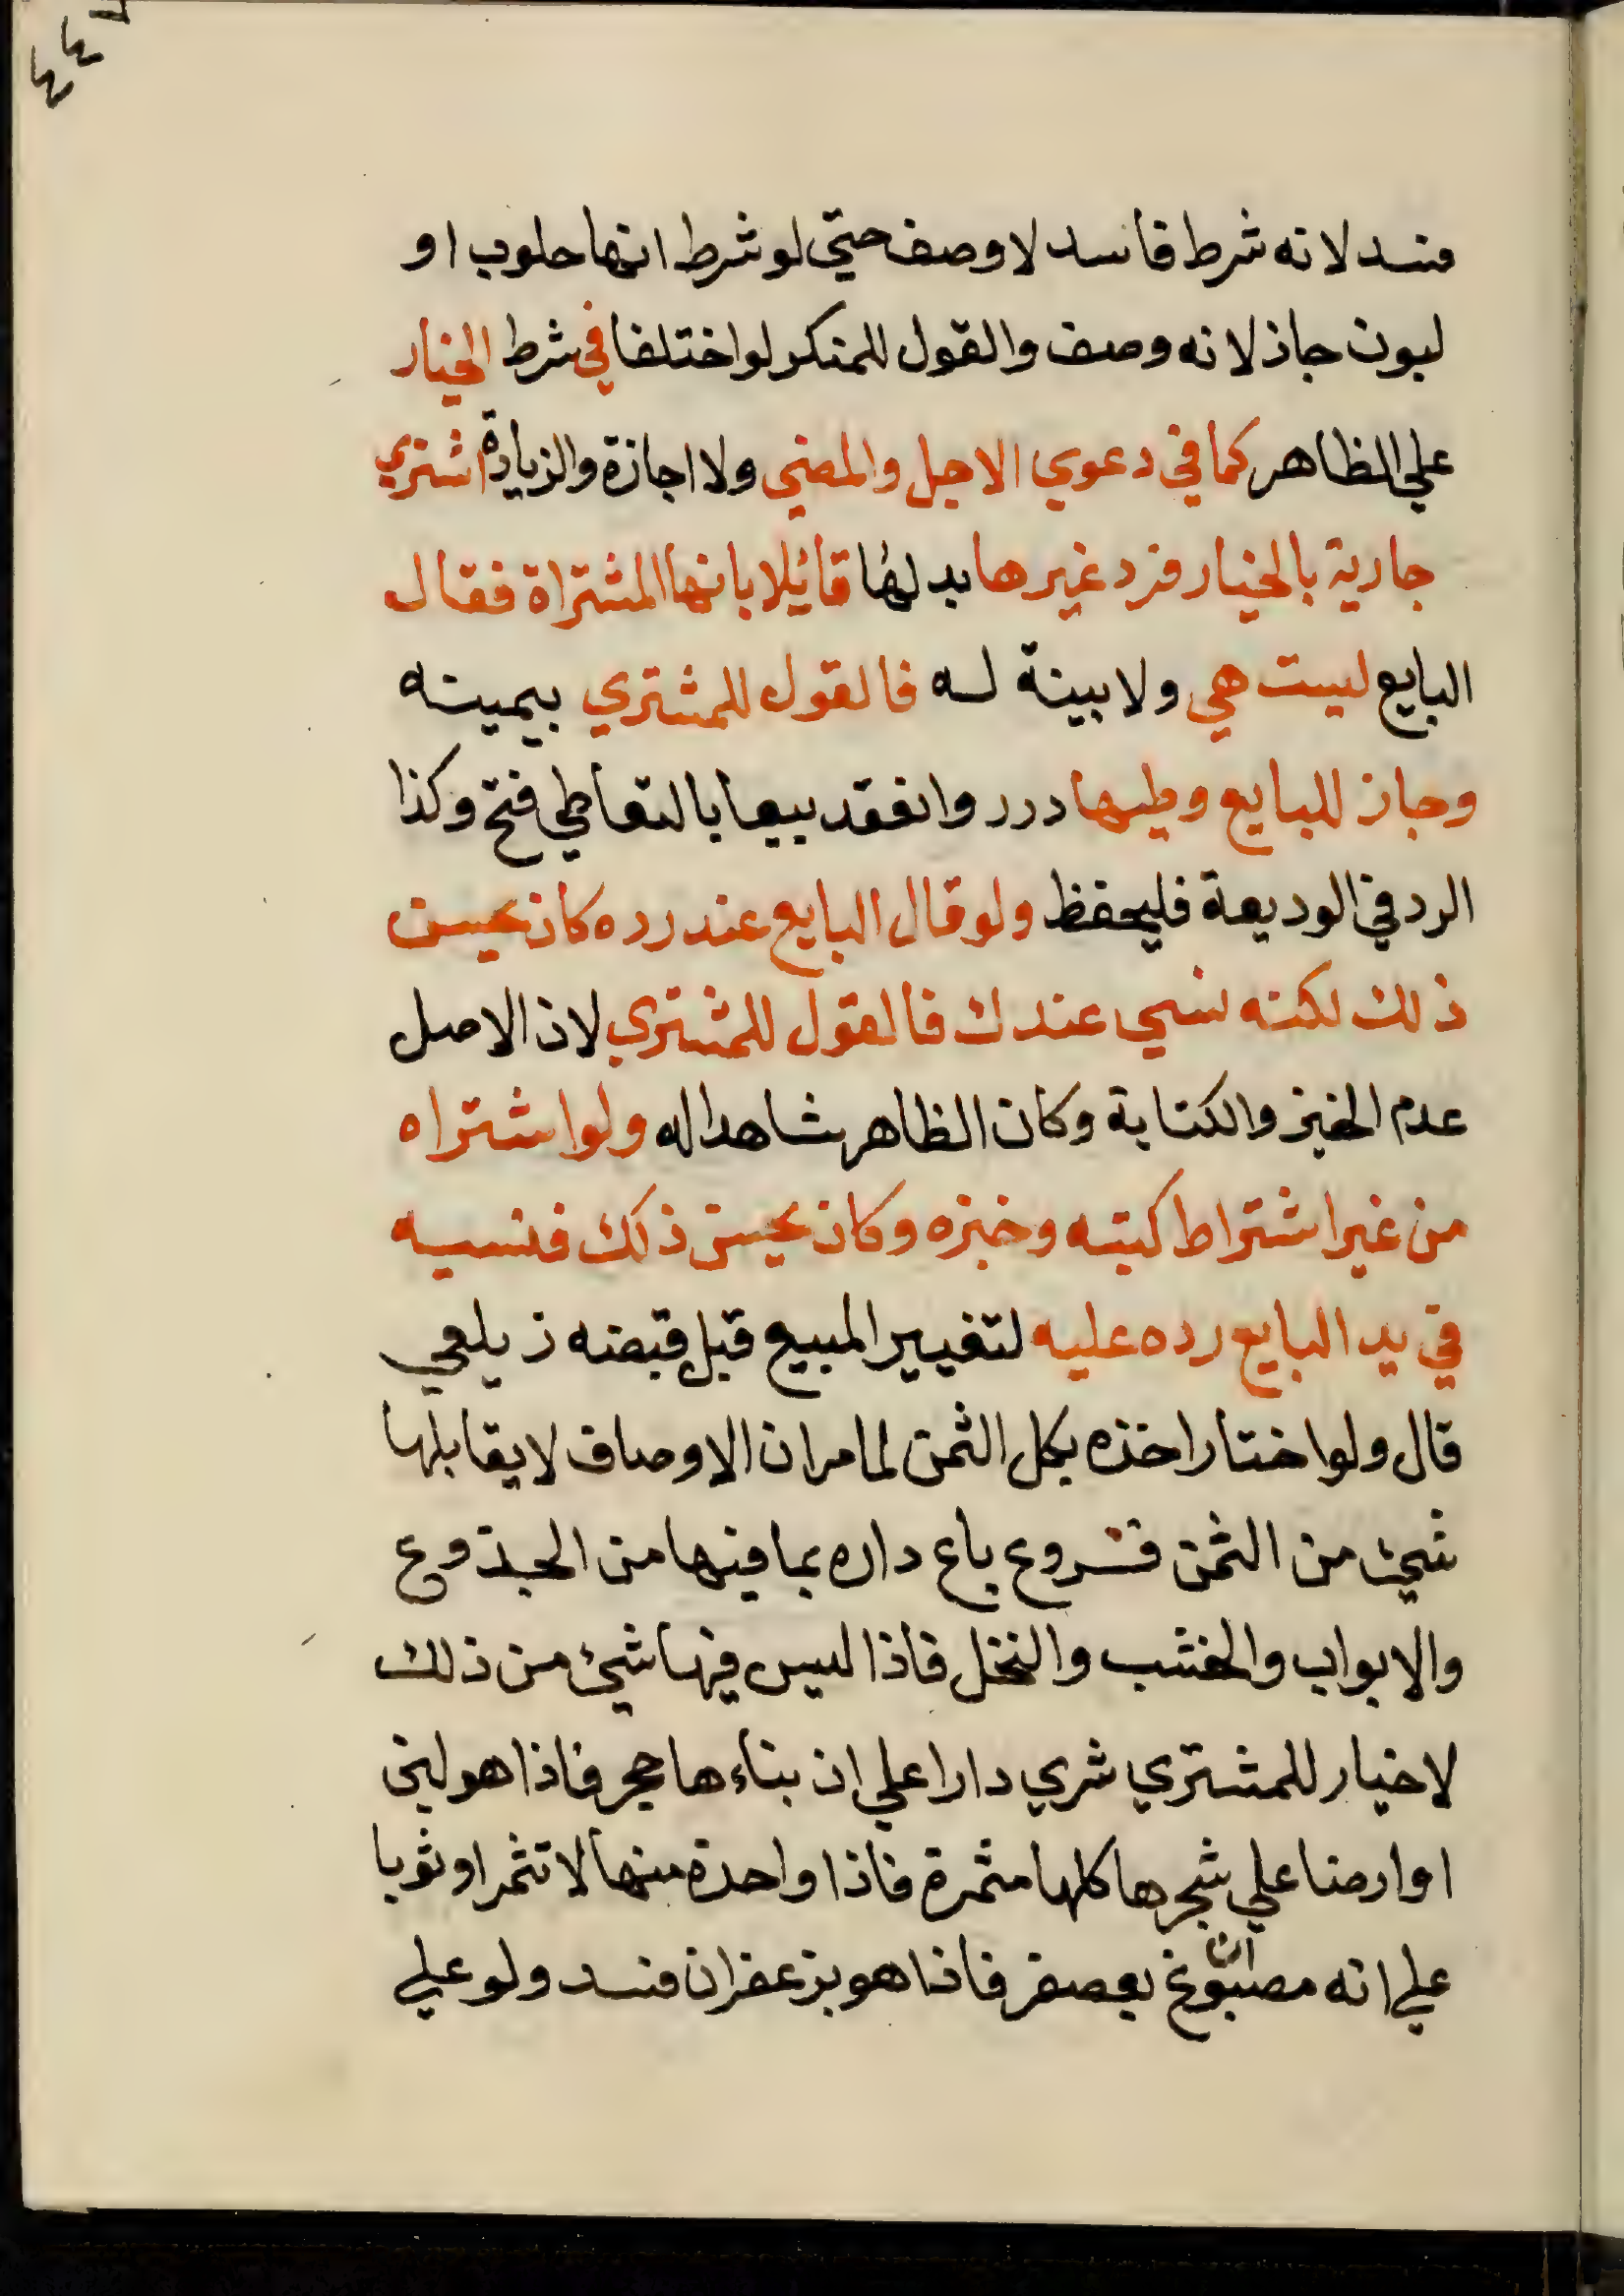 فسد لانه شرط فاسد لا وصف حتي لو شرط انها حلوب او
لبون جاز لانه وصف والقول للمنكر لو اختلفا في شرط الخيار
علي الظاهر كما في دعوي الاجل والمضي ولا اجازة والزيادة اشتري
جارية بالخيار فرد غيرها بدلها قائلا بانها المشتراة فقال
البايع ليست هي ولا بينة له فالقول للمشتري بيمينه
وجاز للبايع وطيها درر وانعقد بيعا بالتعاطي فتح وكذا
الرد في الوديعة فليحفظ ولو قال البايع عند رده كان يحسن
ذلك لكنه نسي عندك فالقول للمشتري لان الاصل
عدم الخبز والكتابة وكان الظاهر شاهدا له ولو اشتراه
من غير اشتراط كتبه وخبزه وكان يحسن ذلك فنسيه
في يد البايع رده عليه لتغيير المبيع قبل قبضه زيلعي
قال ولو اختار اخذه بكل الثمن لما مر ان الاوصاف لا يقابلها
شيئ من الثمن فروع باع داره بما فيها من الجذوع
والابواب والخشب والنخل فاذا ليس فيها شيئ من ذلك
لا خيار للمشتري شري دارا علي ان بناءها حجر فاذا هو لبن
او ارضا علي ان شجرها كلها مثمرة فاذا واحدة منها لا تثمر او ثوبا
علي انه مصبوغ بعصفر فاذا هو بزعفران فسد ولو علي